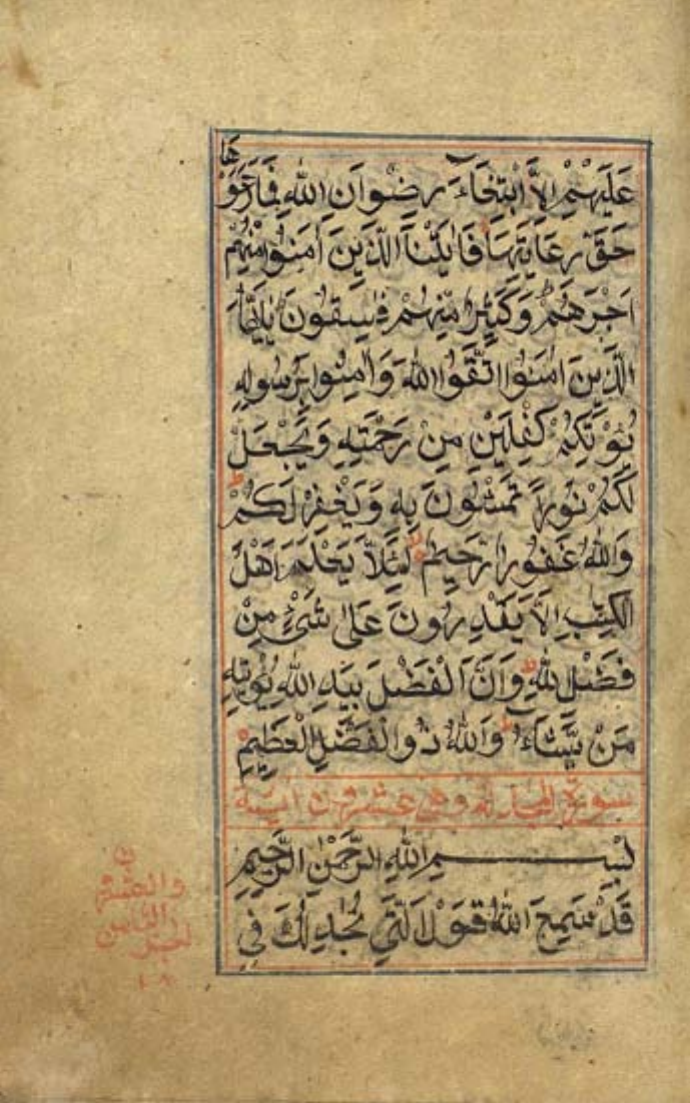 عَلَيْهِمْ اِلَّا ابْتِغَآءَ رِضْوَانِ اللهِ فَمَا رَعَوْهَا
حَقَّ رِعَايَتِهَا فَاٰتَيْنَا الَّذِينَ اٰمَنُوا مِنْهُمْ
اَجْرَهُمْ وَكَثِيرٌ مِّنْهُمْ فٰسِقُونَ يٰاَيُّهَا
الَّذِينَ اٰمَنُوا اتَّقُوا اللهَ وَاٰمِنُوا بِرَسُولِهِ
يُؤْتِكُمْ كِفْلَيْنِ مِنْ رَحْمَتِهِ وَيَجْعَلْ
لَكُمْ نُورًا تَمْشُونَ بِهِ وَيَغْفِرْ لَكُمْ
وَاللهُ غَفُورٌ رَّحِيمٌ لِئَلَّا يَعْلَمَ اَهْلُ
الْكِتٰبِ اَلَّا يَقْدِرُونَ عَلٰى شَىْءٍ مِنْ
فَضْلِ اللهِ وَاَنَّ الْفَضْلَ بِيَدِ اللهِ يُؤْتِيهِ
مَنْ يَّشَآءُ وَاللهُ ذُو الْفَضْلِ الْعَظِيمِ
سورة المجادلة وهي عشرون اية
بِسْمِ اللهِ الرَّحْمٰنِ الرَّحِيمِ
قَدْ سَمِعَ اللهُ قَوْلَ الَّتِي تُجَادِلُكَ فِي
والعشر
الثامن